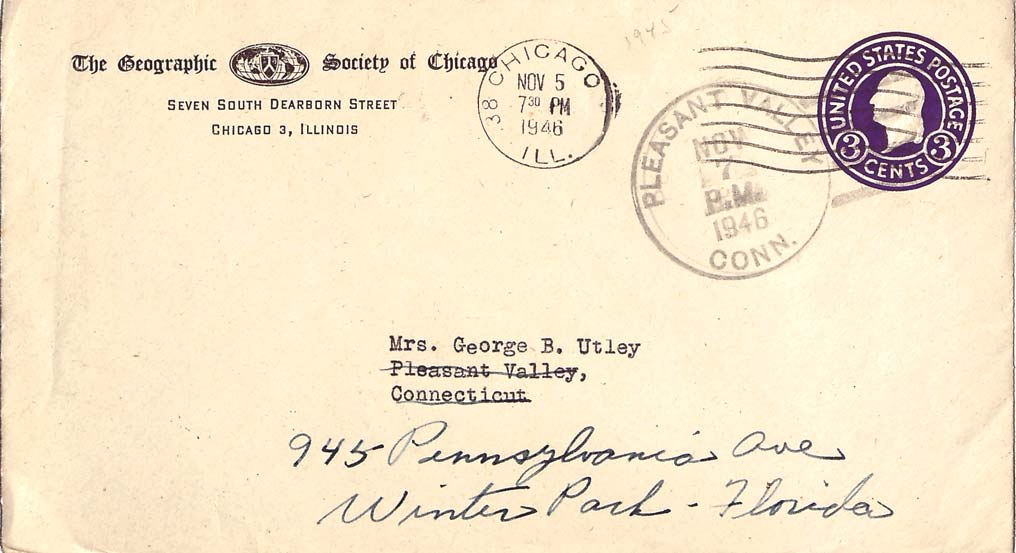 The Geographic Society of Chicago
SEVEN SOUTH DEARBORN STREET
CHICAGO 3, ILLINOIS
38 CHICAGO
NOV 5
7 30 PM
1946
ILL.
1945
PLEASANT VALLEY
NOV
7
P.M.
1946
CONN.
UNITED STATES POSTAGE
3 CENTS 3
Mrs. George B. Utley
Pleasant Valley,
Connecticut
945 Pennsylvania Ave
Winter Park - Florida